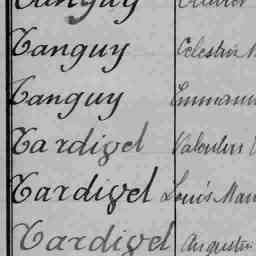 Tanguy
Tanguy Célestin
Tanguy Emmanuel
Tardivel Valentin
Tardivel Louis Marie
Tardivel Augustin